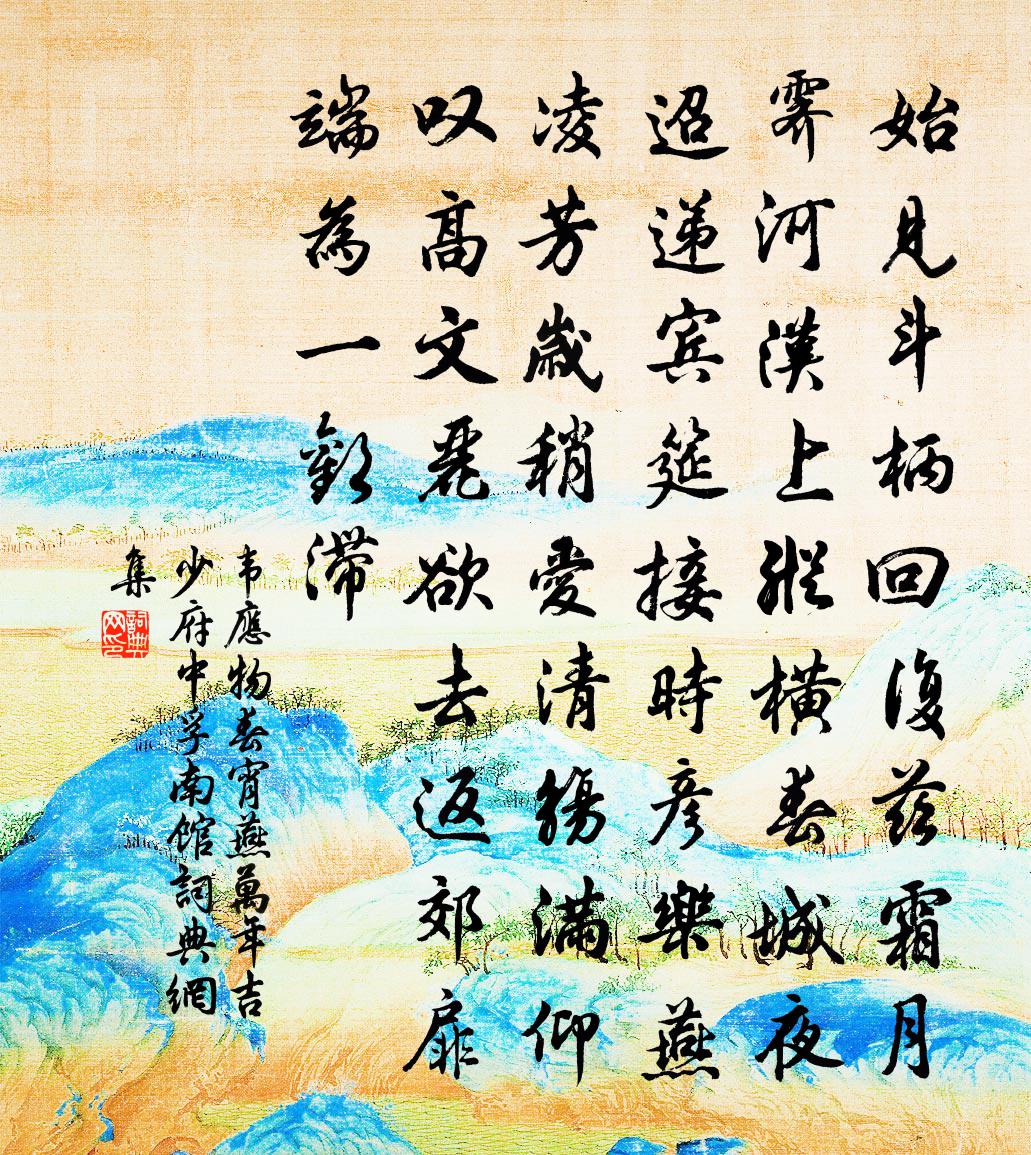 始見斗柄回復茲霜月
霽河漢上縱橫春城夜
迢递賓筵接時彥樂燕
凌芳歲稍愛清觴滿仰
叹高文麗欲去返郊扉
端為一歡滯
韦應物春宵燕萬年吉
少府中孚南館詞典網
集
詞典网印